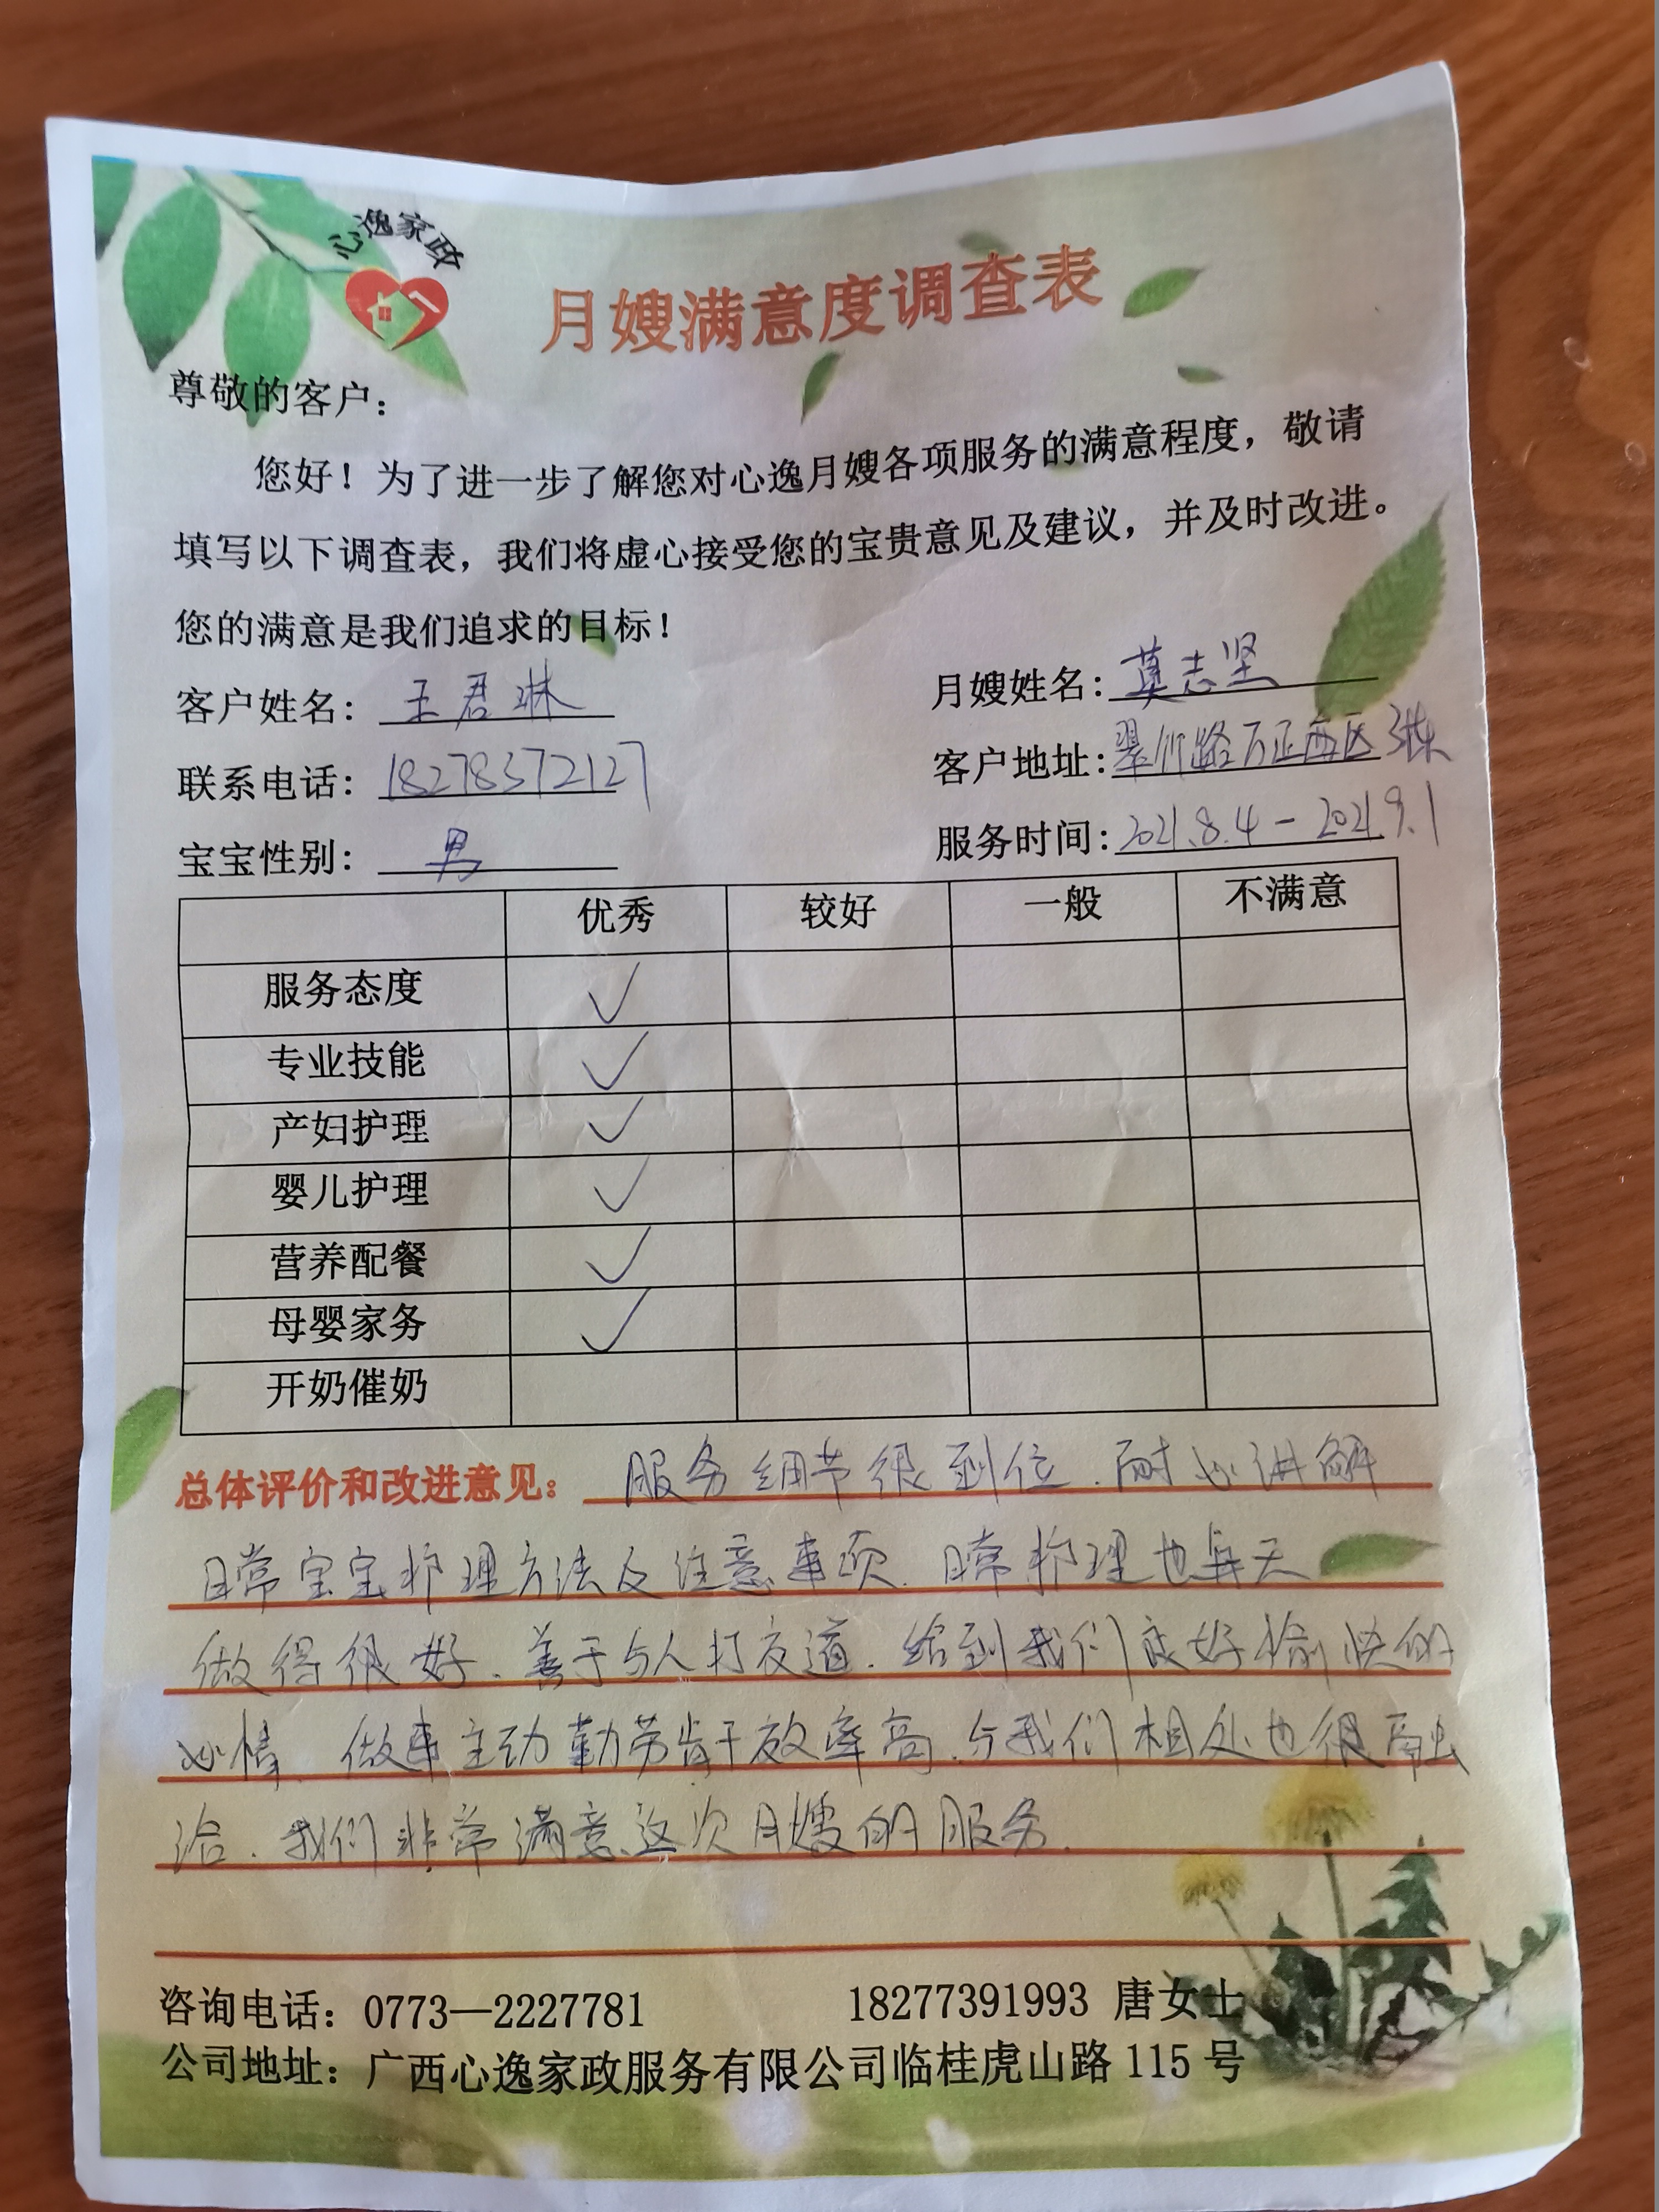 心逸家政
月嫂满意度调查表
尊敬的客户：
您好！为了进一步了解您对心逸月嫂各项服务的满意程度，敬请
填写以下调查表，我们将虚心接受您的宝贵意见及建议，并及时改进。
您的满意是我们追求的目标！
客户姓名：王君琳 月嫂姓名：莫志坚
联系电话：18278372127 客户地址：翠竹路万正西区3栋
宝宝性别：男 服务时间：2021.8.4-2021.9.1
优秀 较好 一般 不满意
服务态度 ✓
专业技能 ✓
产妇护理 ✓
婴儿护理 ✓
营养配餐 ✓
母婴家务 ✓
开奶催奶
总体评价和改进意见：服务细节很到位.耐心讲解
日常宝宝护理方法及注意事项.日常护理也每天
做得很好.善于与人打交道.给到我们良好愉快的
心情.做事主动勤劳肯干效率高.与我们相处也很融
洽.我们非常满意这次月嫂的服务.
咨询电话：0773—2227781 18277391993 唐女士
公司地址：广西心逸家政服务有限公司临桂虎山路 115 号